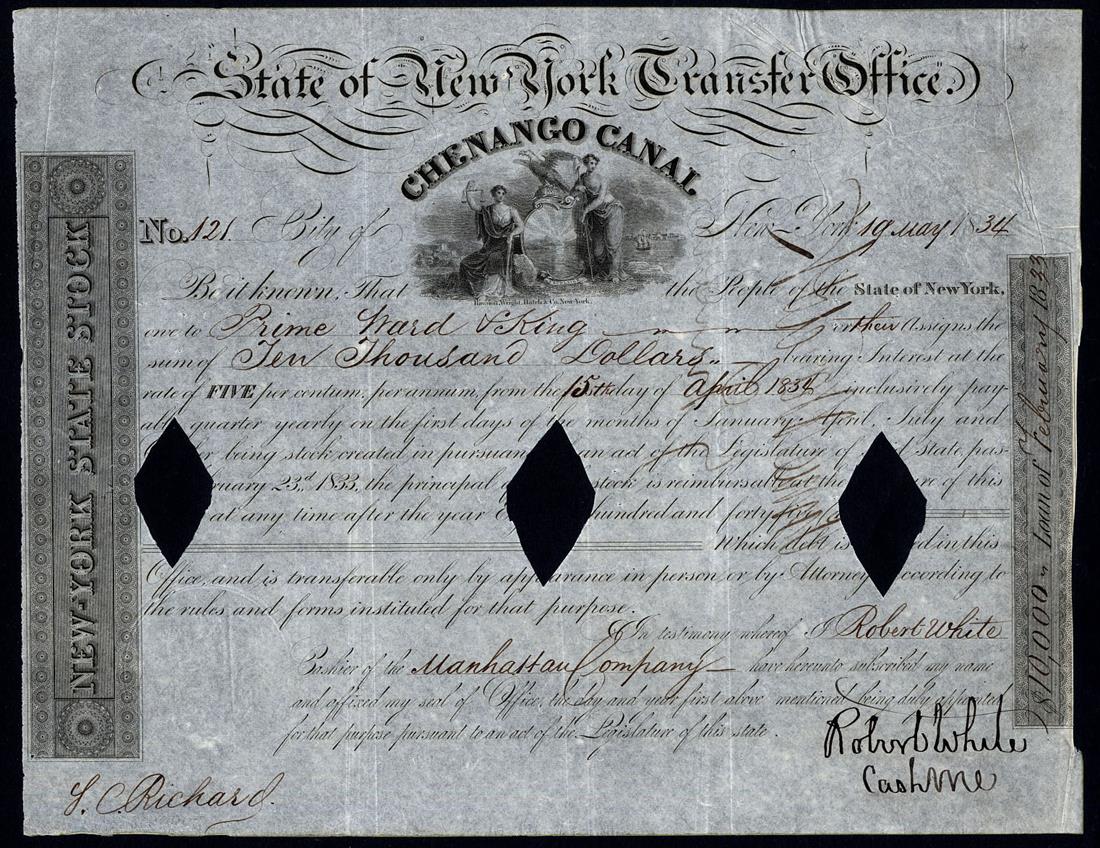 State of New York Transfer Office.
CHENANGO CANAL
No. 121. City of New York 19 May 1834
Rawdon, Wright, Hatch & Co. New-York.
Be it known, That the People of the State of New York,
owe to Prime Ward & King or their Assigns the
sum of Ten Thousand Dollars bearing Interest at the
rate of FIVE per centum, per annum, from the 15th day of April 1834 inclusively pay-
quarter yearly on the first days of the months of January, April, July and
being stock created in pursuan an act of the Legislature of State, pas-
ruary 23rd 1833, the principal stock is reimbursable at the re of this
at any time after the year E hundred and forty five
Which debt is ed in this
Office, and is transferable only by appearance in person, or by Attorney according to
the rules and forms instituted for that purpose.
In testimony whereof I Robert White
Cashier of the Manhattan Company have hereunto subscribed my name
and affixed my seal of Office, the day and year first above mentioned being duly appointed
for that purpose pursuant to an act of the Legislature of this state.
Robert White
Cash
S. C. Richard.
NEW-YORK STATE STOCK
$10,000 Loan of February 1833